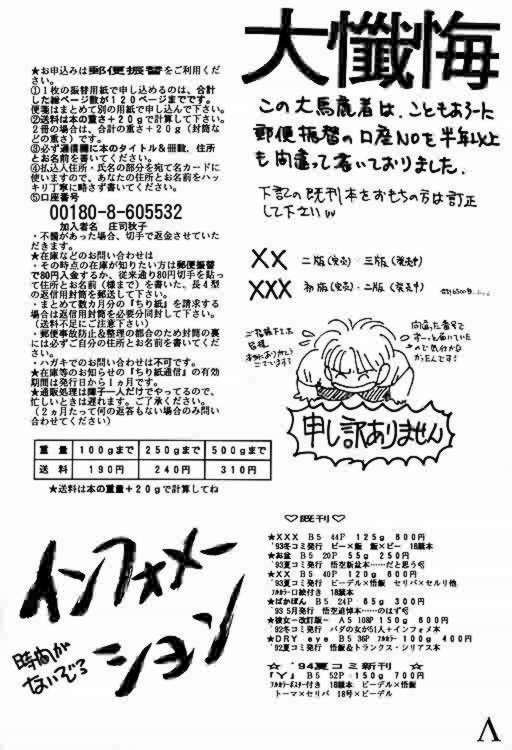 ★お申込みは郵便振替をご利用くだ
さい。
①1枚の振替用紙で申し込めるのは、合計
した総ページ数が120ページまでです。
便箋はまとめて別の用紙で申し込んで下さい。
②送料は本の重さ+20gで計算して下さい。
2冊の場合は、合計の重さ+20g(封筒な
どの重さ)です。
③必ず通信欄に本のタイトル&冊数、住所
とお名前を書いてください。
④払込人住所・氏名の部分を宛て名カードに
使いますので、あなたの住所とお名前をハッ
キリ丁寧に略さず書いてください。
⑤口座番号
00180-8-605532
加入者名 庄司秋子
・不備があった場合、切手で返金させていた
だきます。
★在庫などのお問い合わせは
・その時点の在庫が知りたい方は郵便振替
で80円入金するか、従来通り80円切手を貼っ
て住所とお名前(様まで)を書いた、長4型
の返信用封筒を郵送して下さい。
・まとめて数カ月分の『ちり紙』を請求する
場合は返信用封筒を必要分同封して下さい。
(送料不足にご注意下さい)
・郵便事故防止&整理の都合のため封筒の裏
には必ずご自分の住所とお名前を書いてくだ
さい。
・ハガキでのお問い合わせは不可です。
★在庫等のお知らせの『ちり紙通信』の有効
期間は発行日から1ヵ月です。
★通販処理は障子一人だけでやってるので、
忙しいときは遅れます。ご了承ください。
(2ヵ月たって何の返答もない場合のみ問い
合わせてください)
重量 100gまで 250gまで 500gまで
送料 190円 240円 310円
★送料は本の重量+20gで計算してね
インフォメー
ション
時間が
ないぞう
大懺悔
この大馬鹿者は、こともあろーに
郵便振替の口座NOを半年以上
も間違って書いておりました。
下記の既刊本をおもちの方は訂正
して下さい
×× 二版(完売)・三版(発売中)
××× 初版(完売)・二版(発売中)
ご指摘下さった
皆様
本当にありがとう
ございます!!
間違った番号で
ずーっと届いていた
ので気付かな
かったんです!
申し訳ありません
♡既刊♡
★XXX B5 44P 125g 600円
'93冬コミ発行 ビー×飯 飯×ビー 18禁本
★お盆 B5 20P 55g 250円
'93夏コミ発行 悟空新盆本……だと思う
★XX B5 40P 120g 600円
'93夏コミ発行 ビーデル×悟飯 セリパ×セルリ他
フルカラー口絵付き 18禁本
★ばかぼん B5 24P 65g 300円
'93 5月発行 悟空追悼本……のはず
★彼女-改訂版- A5 108P 150g 600円
'92冬コミ発行 バダの女が51人+インフォメ本
★DRY eye B5 36P フルカラー 100g 400円
'92夏コミ発行 悟飯&トランクス・シリアス本
☆ '94夏コミ新刊 ☆
『Y』 B5 52P 150g 700円
フルカラーポスター付き 18禁本 ビーデル×悟飯
トーマ×セリパ 18号×ビーデル